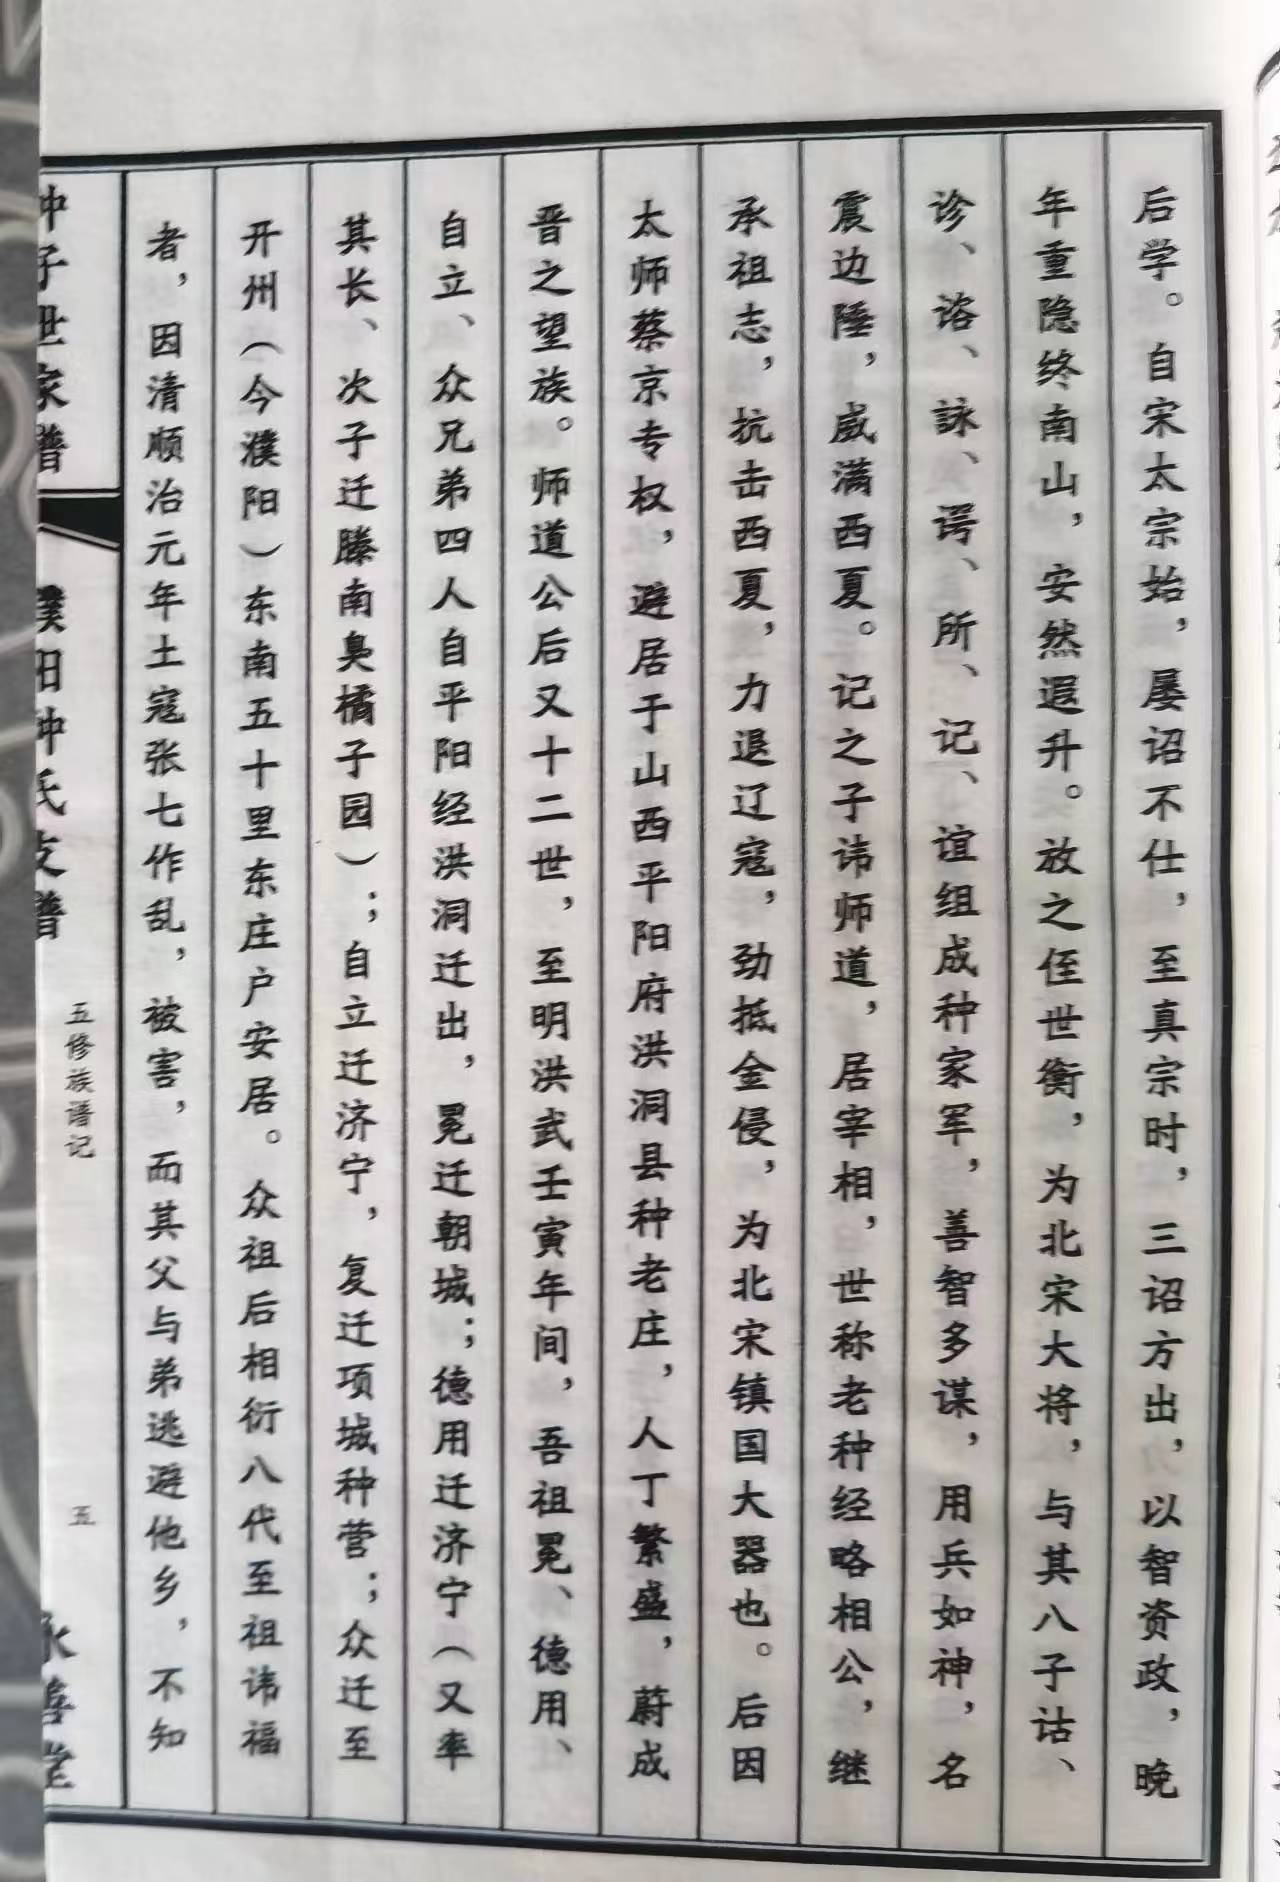 后学。自宋太宗始，屡诏不仕，至真宗时，三诏方出，以智资政，晚
年重隐终南山，安然遐升。放之侄世衡，为北宋大将，与其八子诂、
诊、谘、詠、谔、所、记、谊组成种家军，善智多谋，用兵如神，名
震边陲，威满西夏。记之子讳师道，居宰相，世称老种经略相公，继
承祖志，抗击西夏，力退辽寇，劲抵金侵，为北宋镇国大器也。后因
太师蔡京专权，避居于山西平阳府洪洞县种老庄，人丁繁盛，蔚成
晋之望族。师道公后又十二世，至明洪武壬寅年间，吾祖冕、德用、
自立、众兄弟四人自平阳经洪洞迁出，冕迁朝城；德用迁济宁（又率
其长、次子迁滕南臭橘子园）；自立迁济宁，复迁项城种营；众迁至
开州（今濮阳）东南五十里东庄户安居。众祖后相衍八代至祖讳福
者，因清顺治元年土寇张七作乱，被害，而其父与弟逃避他乡，不知
种子世家谱
濮阳种氏支谱
五修族谱记
五
永善堂